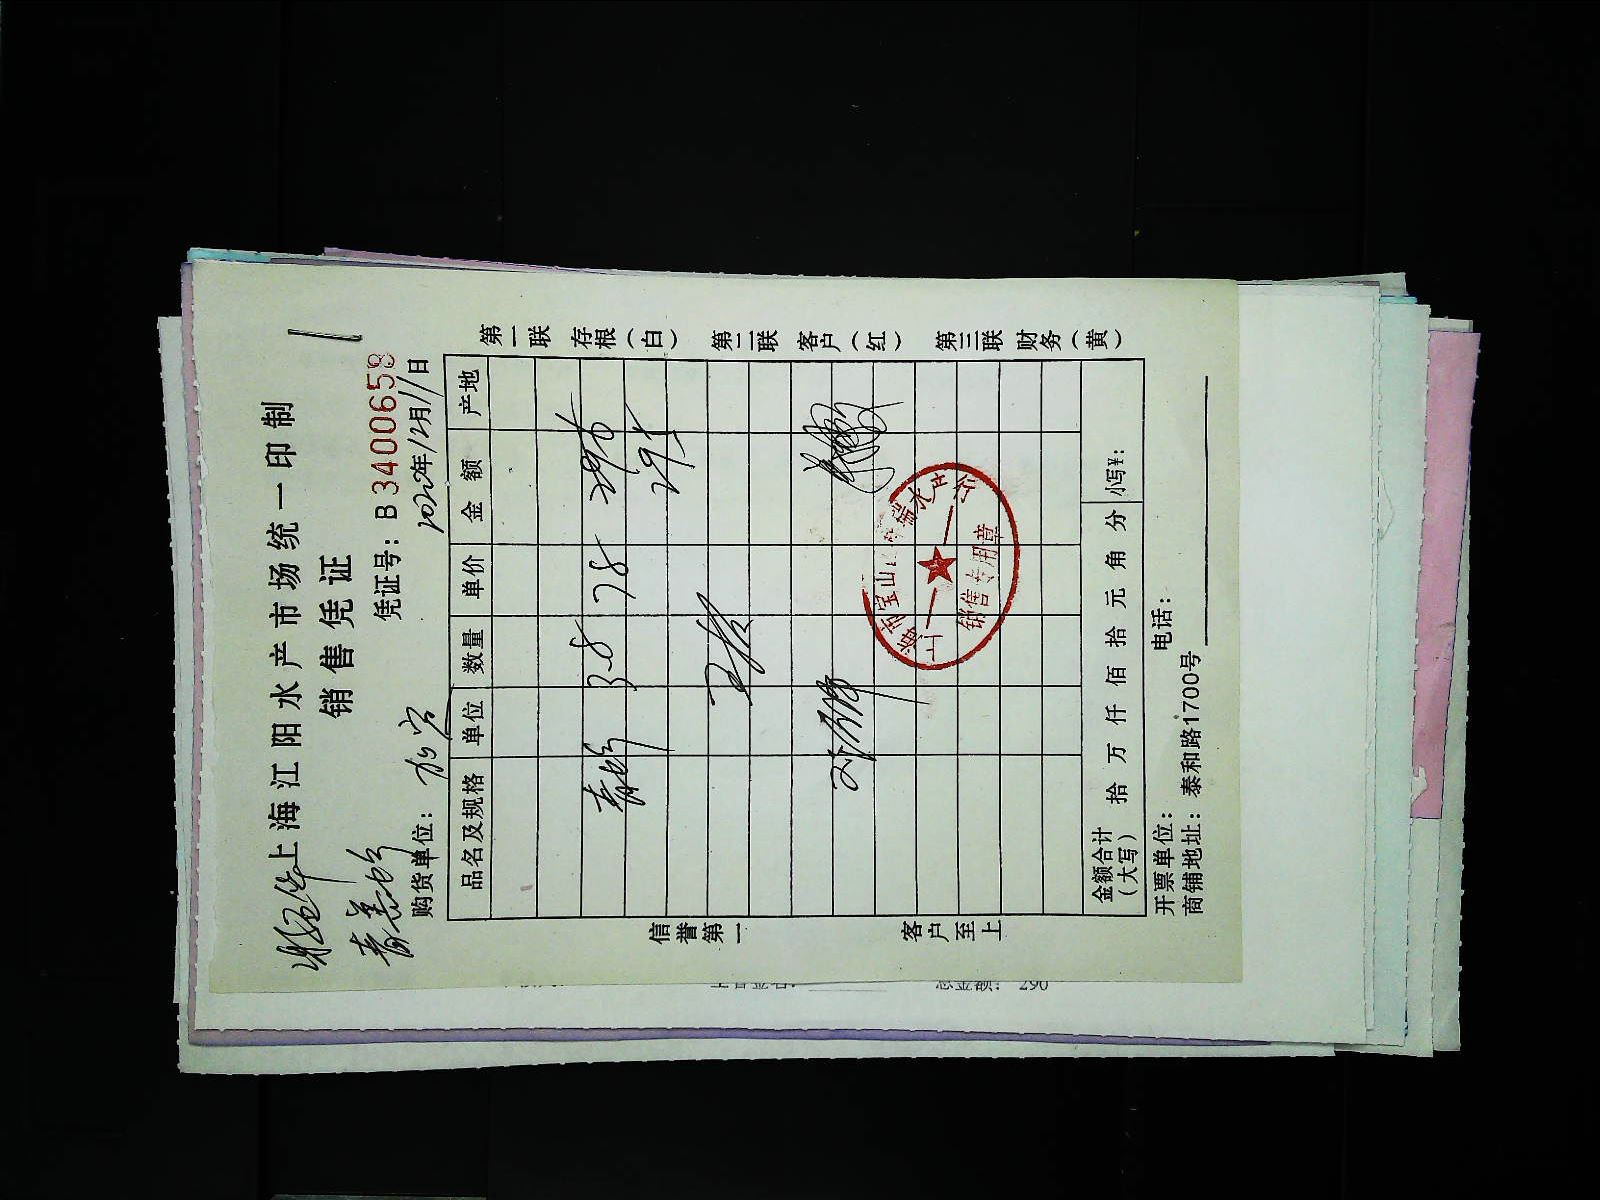 上海江阳水产市场统一印制
销售凭证
凭证号：B3400658
购货单位：
2020年12月11日
品名及规格 单位 数量 单价 金额 产地
3.8 78
295
金额合计（大写） 拾 万 仟 佰 拾 元 角 分 小写¥：
开票单位： 电话：
商铺地址：泰和路1700号
信誉第一 客户至上
第一联 存根（白） 第二联 客户（红） 第三联 财务（黄）
水产行
销售专用章
总金额： 290